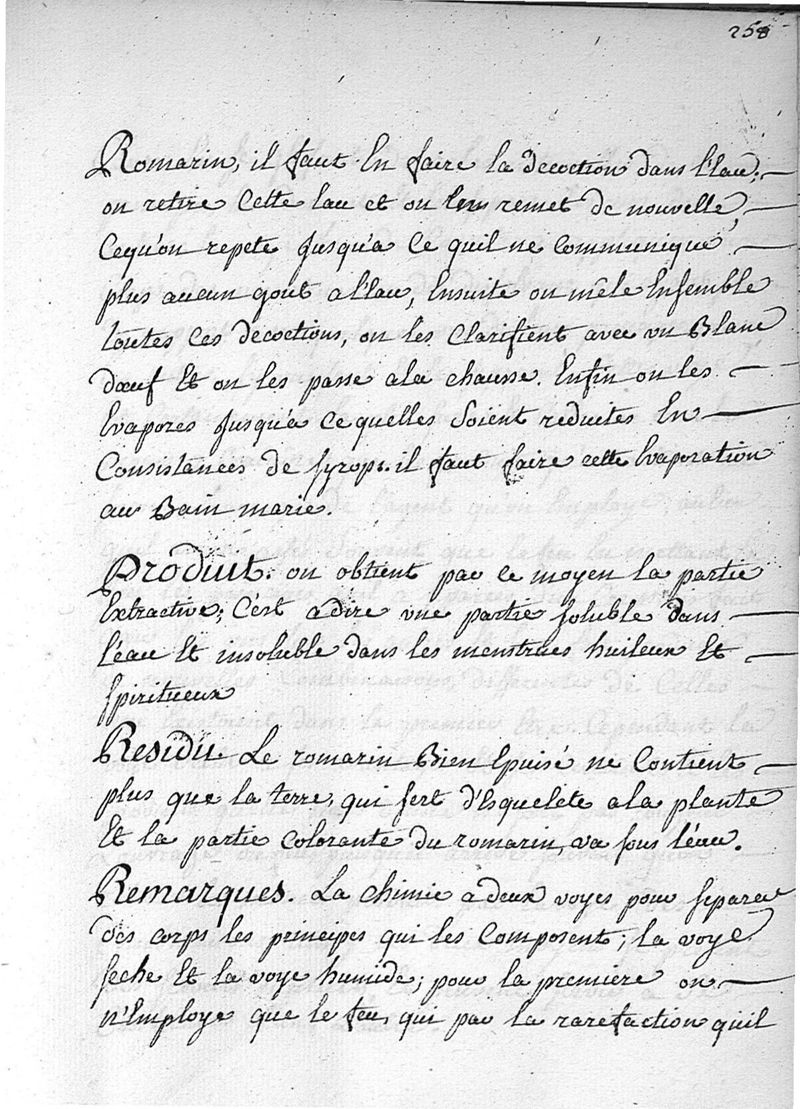 258
Romarin, il faut En faire la decoction dans l'Eau;
on retire Cette Eau et on En remet de nouvelle,
Cequ'on repete Jusqu'a Ce quil ne Communique
plus aucun gout a l'Eau, Ensuite on mêle Ensemble
toutes Ces decoctions, on les Clarifient avec un Blanc
dœuf Et on les passe ala chausse. Enfin on les
Evapores Jusqu'a Ce quelles Soient reduites En
Consistances de Syrops. il faut faire cette Evaporation
au Bain marie.
Produit. on obtient par ce moyen la partie
Extractive; C'est adire une partie soluble dans
l'éau Et insoluble dans les menstrues huileux Et
Spiritueux
Residu. Le romarin Bien Epuisé ne Contient
plus que la terre, qui sert d'Esquelete a la plante
Et la partie Colorante du romarin, va sous l'éau.
Remarques. La Chimie a deux voyes pour separer
des corps les principes qui les Composent; la voye
seche Et la voye humide; pour la premiere on
n'Employe que le feu, qui par la rarefaction qu'il